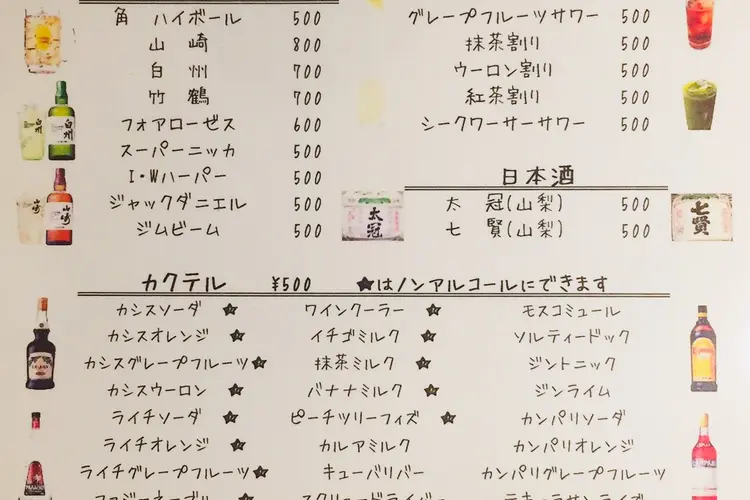 角 ハイボール 500
山 崎 800
白 州 700
竹 鶴 700
フォアローゼス 600
スーパーニッカ 500
I・Wハーパー 500
ジャックダニエル 500
ジムビーム 500
グレープフルーツサワー 500
抹茶割り 500
ウーロン割り 500
紅茶割り 500
シークワーサーサワー 500
日本酒
太 冠(山梨) 500
七 賢(山梨) 500
白州
山崎
太冠
七賢
カクテル ¥500 ★はノンアルコールにできます
カシスソーダ ★
カシスオレンジ ★
カシスグレープフルーツ★
カシスウーロン ★
ライチソーダ ★
ライチオレンジ ★
ライチグレープフルーツ★
ファジーネーブル ★
ワインクーラー ★
イチゴミルク ★
抹茶ミルク ★
バナナミルク ★
ピーチツリーフィズ ★
カルアミルク
キューバリバー
スクリュードライバー
モスコミュール
ソルティードック
ジントニック
ジンライム
カンパリソーダ
カンパリオレンジ
カンパリグレープフルーツ
テキーラサンライズ